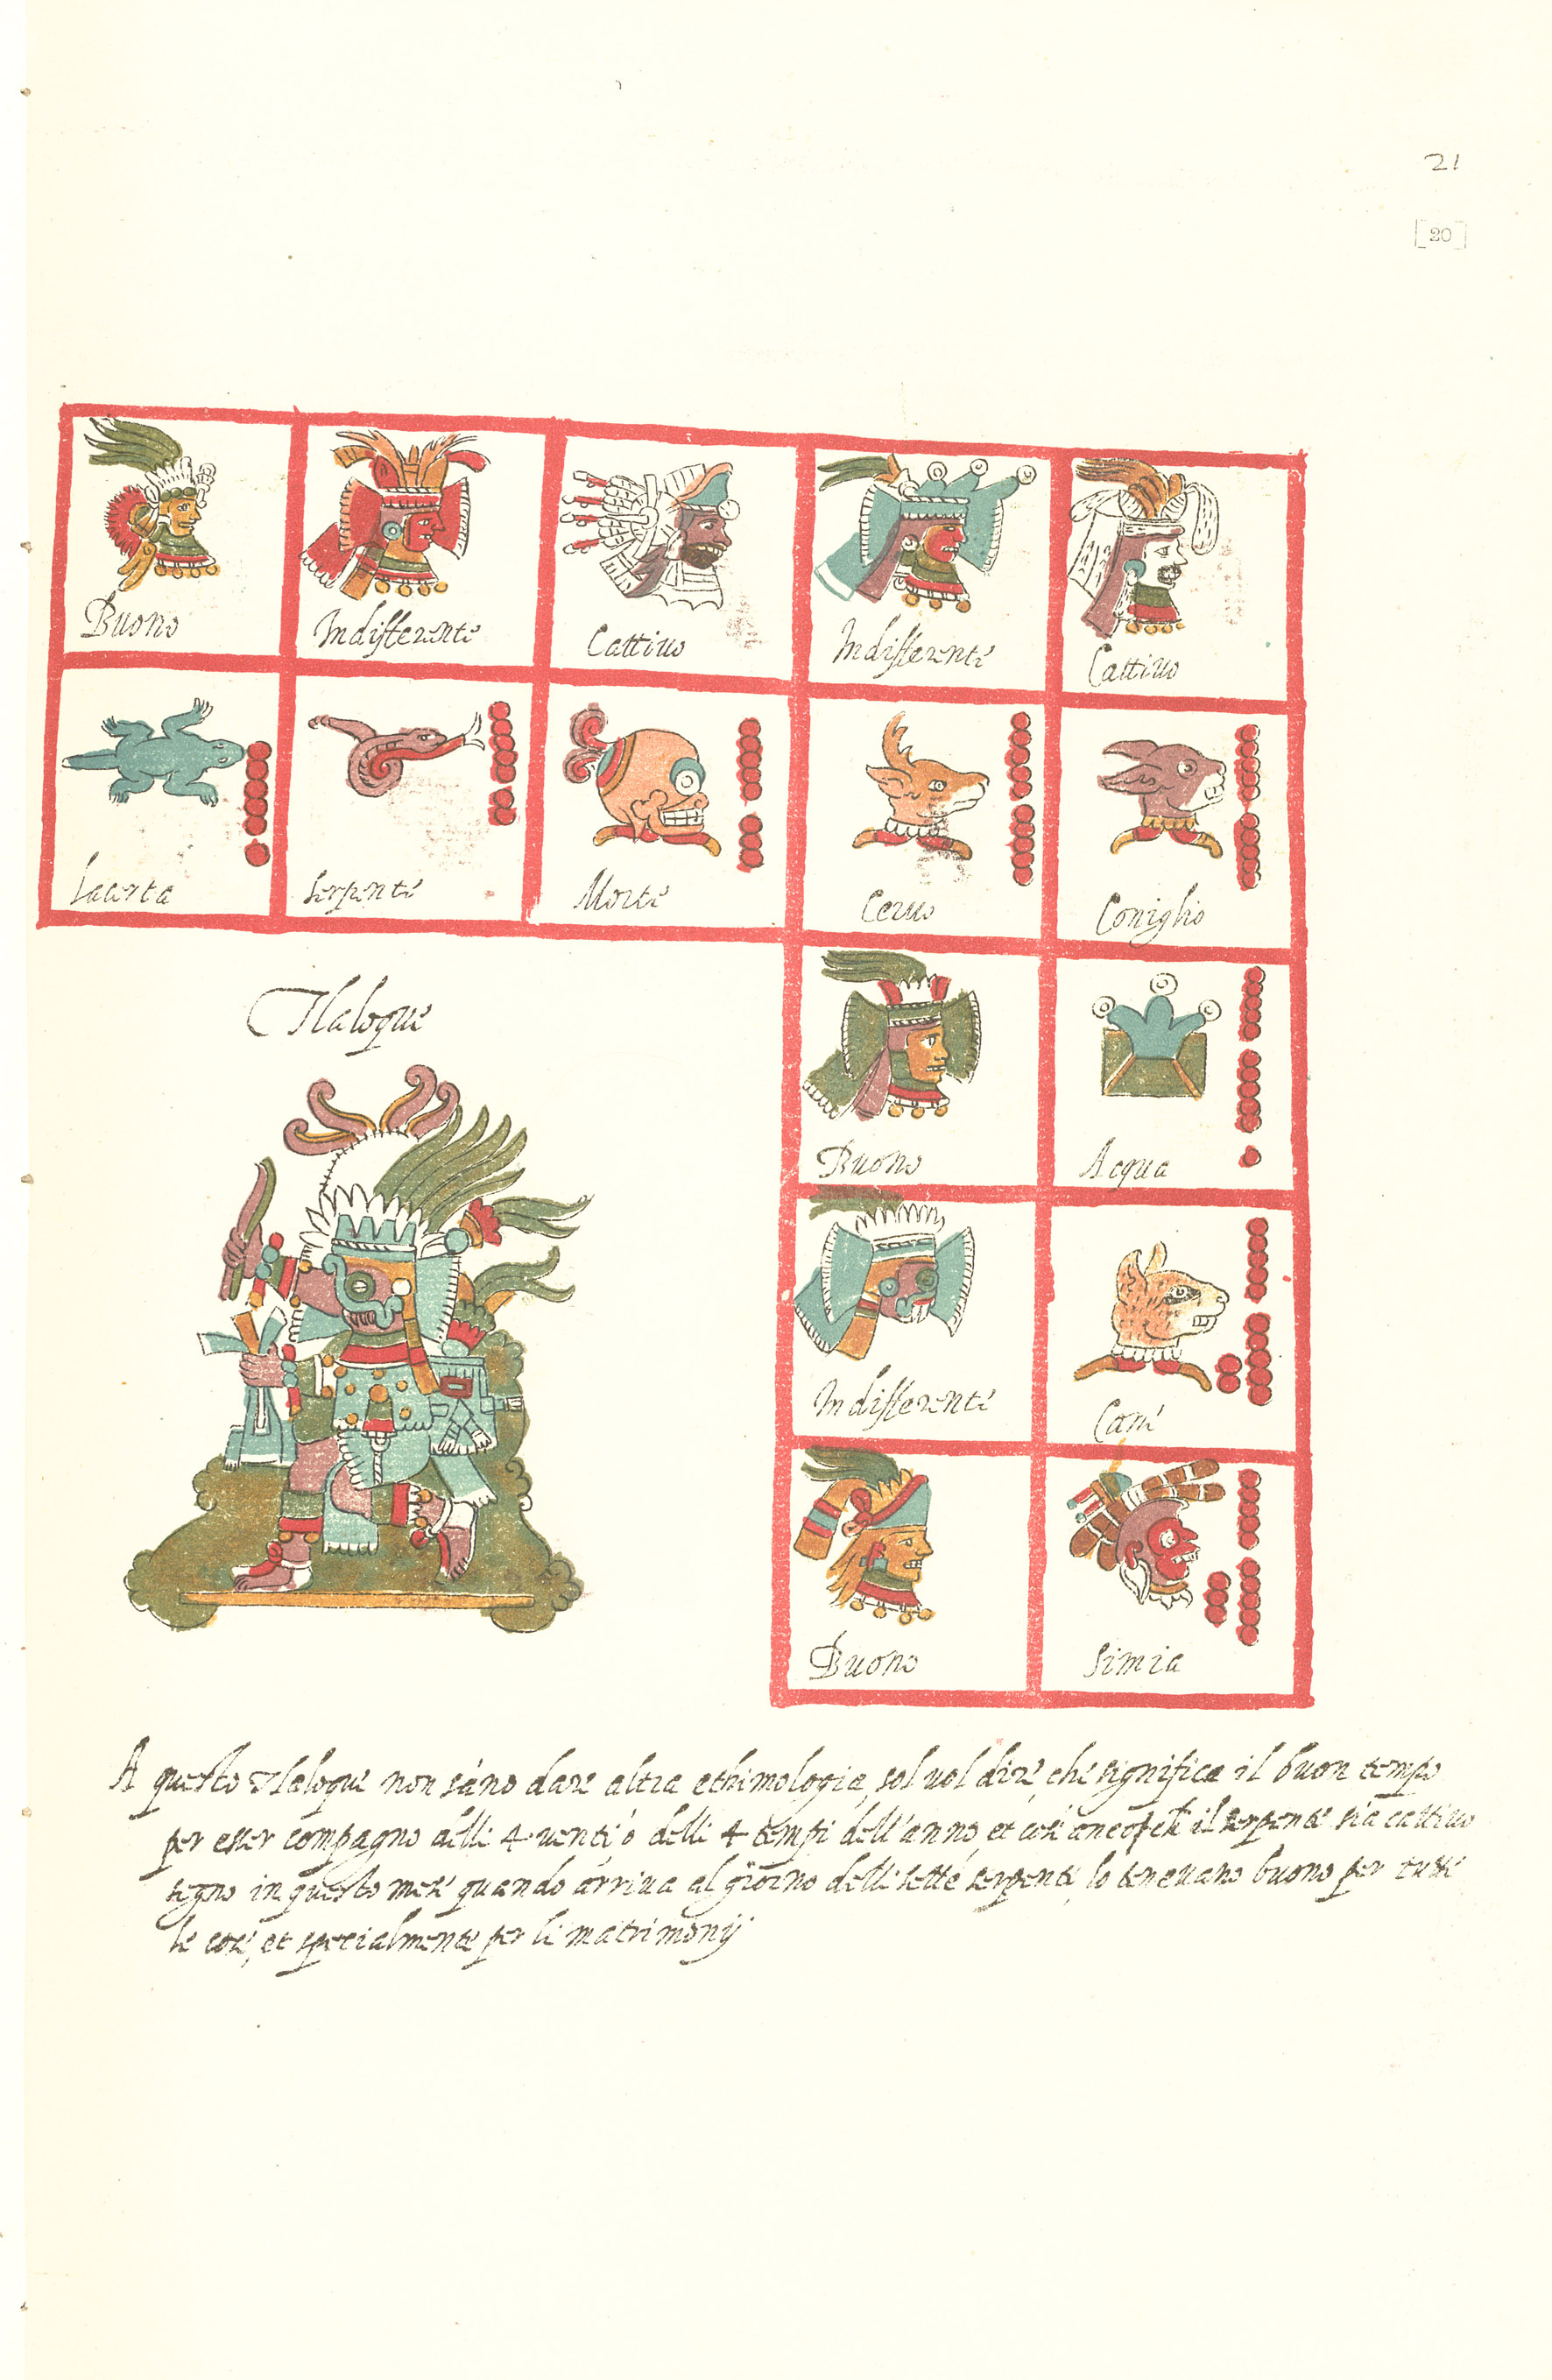 21
[20]
Buono
Indifferente
Cattiuo
Indifferente
Cattiuo
Lacerta
Serpente
Morte
Ceruo
Coniglio
Tlaloque
Buono
Acqua
Indifferente
Cane
Buono
Simia
A questo Tlaloque non sano dare altra ethimologia, sol uol dire, che significa il buon tempo
per esser compagno delli 4 uenti, ó delli 4 tempi dell'anno, et cosi anco che il serpente sia cattiuo
segno in questo mese quando arriua al giorno delli sette serpenti, lo teneuano buono per tutte
le cose, et specialmente per li matrimonij